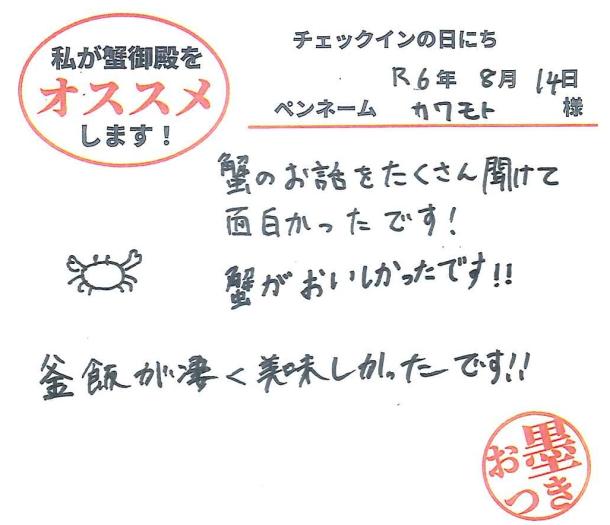 私が蟹御殿を
オススメ
します！
チェックインの日にち
R6年 8月 14日
ペンネーム カワモト 様
蟹のお話をたくさん聞けて
面白かったです！
蟹がおいしかったです!!
釜飯が凄く美味しかったです!!
お墨
つき